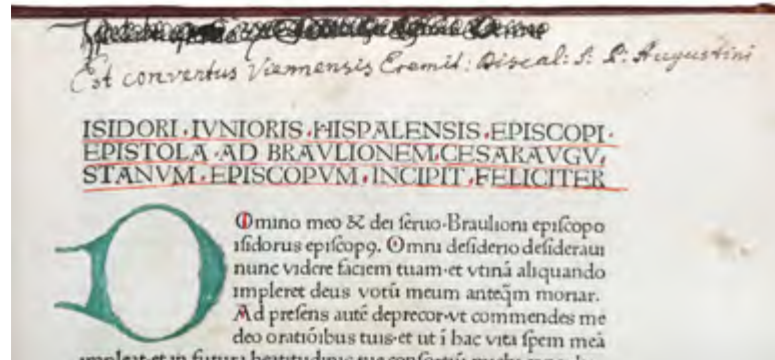 Est conventus Viennensis Eremit: Discal: S: P: Augustini
ISIDORI. IVNIORIS. HISPALENSIS. EPISCOPI.
EPISTOLA. AD BRAVLIONEM. CESARAVGV,
STANVM. EPISCOPVM. INCIPIT. FELICITER
Omino meo & dei ſeruo·Braulioni epiſcopo
iſidorus epiſcopꝰ. Omni deſiderio deſideraui
nunc videre faciem tuam·et vtinā aliquando
impleret deus votū meum anteq̄m moriar.
Ad preſens autē deprecor·vt commendes me
deo oratiōibus tuis·et ut ī hac vita ſpem meā